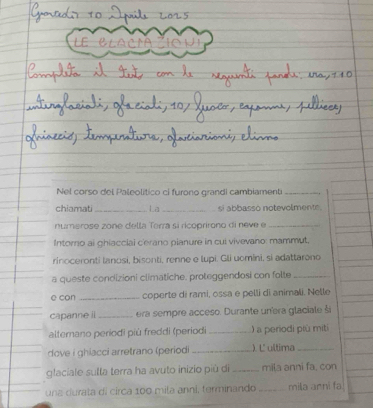 Giovedì 10 Aprile 2025
LE GLACIAZIONI
Completa il testo con le seguenti parole: era, 110
interglaciali, glaciali, 10, fuoco, capanne, pellicce,
ghiaccio, temperatura, glaciazioni, clima
Nel corso del Paleolitico ci furono grandi cambiamenti ____
chiamati ____. La ____ si abbassò notevolmente,
numerose zone della Terra si ricoprirono di neve e ____
Intorno ai ghiacciai c'erano pianure in cui vivevano: mammut,
rinoceronti lanosi, bisonti, renne e lupi. Gli uomini, si adattarono
a queste condizioni climatiche, proteggendosi con folte ____
e con ____ coperte di rami, ossa e pelli di animali. Nelle
capanne il ____ era sempre acceso. Durante un'era glaciale si
alternano periodi più freddi (periodi ____) a periodi più miti
dove i ghiacci arretrano (periodi ____). L'ultima ____
glaciale sulla terra ha avuto inizio più di ____ mila anni fa, con
una durata di circa 100 mila anni, terminando ____ mila anni fa.